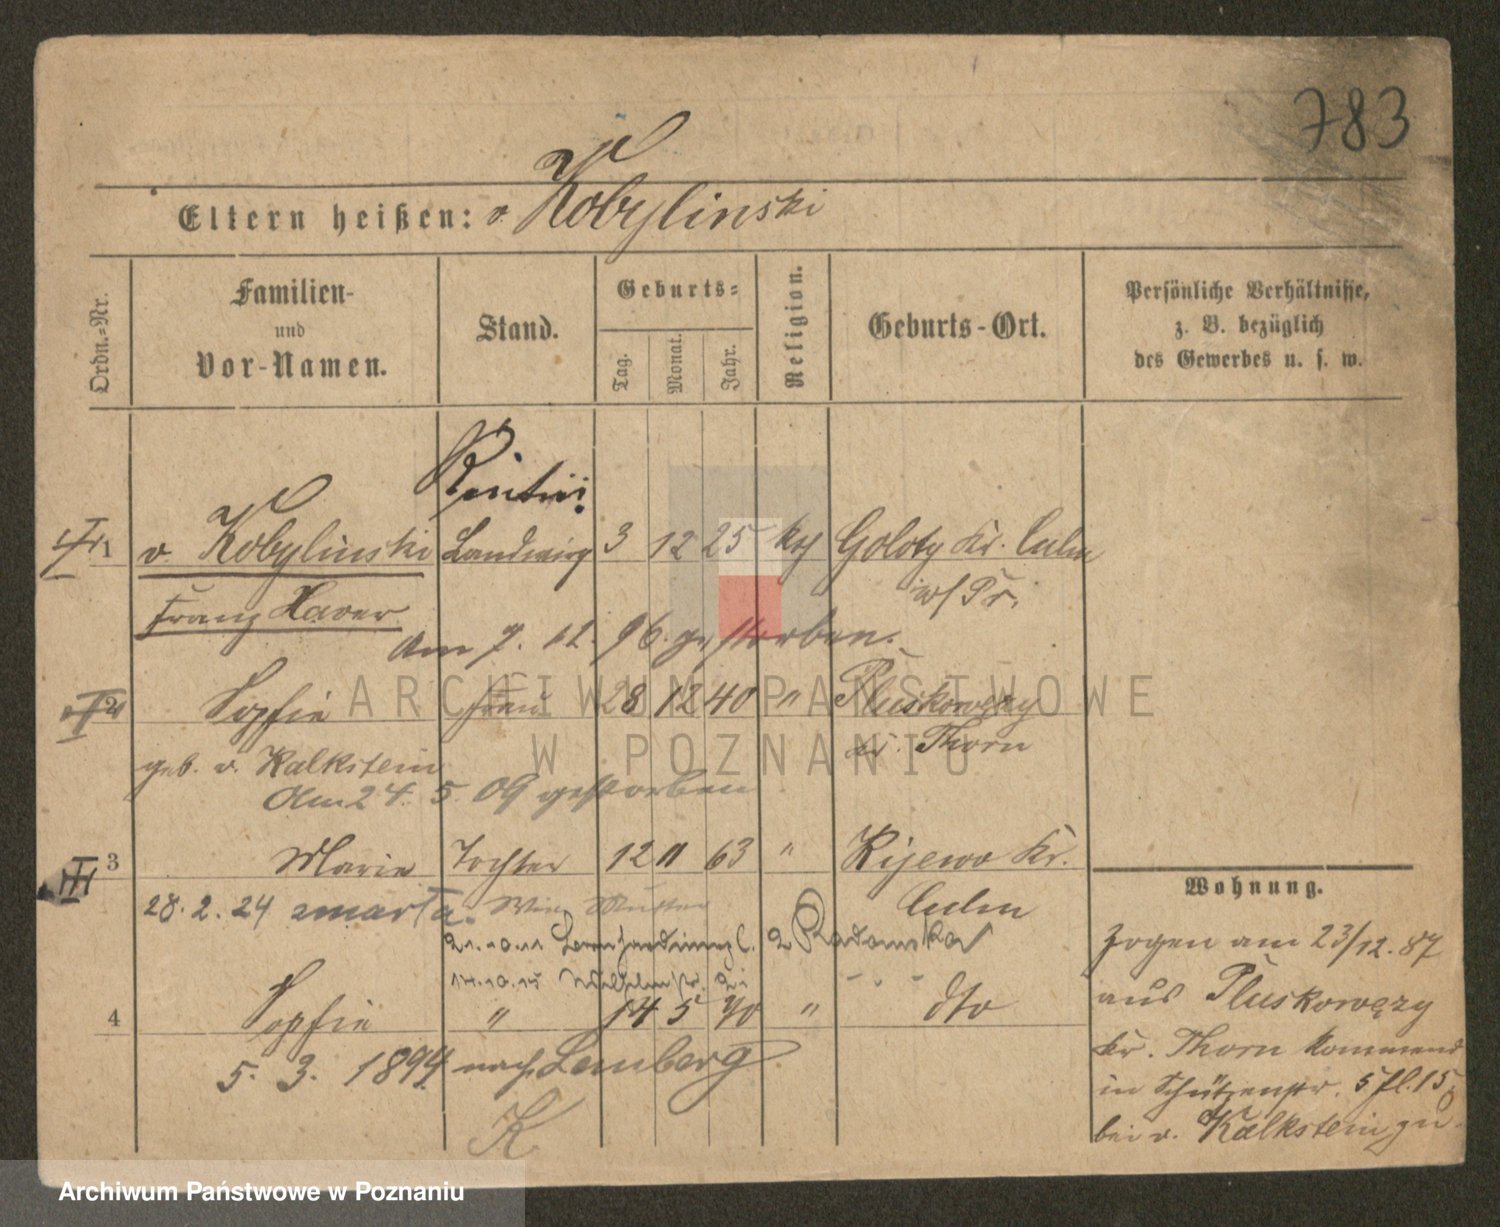 783
Eltern heißen: v. Kobylinski
Ordn.-Nr.
Familien-
und
Vor-Namen.
Stand.
Geburts-
Tag.
Monat.
Jahr.
Religion.
Geburts-Ort.
Persönliche Verhältnisse,
z. B. bezüglich
des Gewerbes u. s. w.
Rentier
1 v. Kobylinski Landwirg 3 12 25 kth Goloty Kr. Culm
w/Pr.
Franz Xaver
Am 7. 12. 96. gestorben.
2 Sophie Frau 28 12 40 " Pluskowęzy
Kr. Thorn
geb. v. Kalkstein
Am 24. 5. 09 gestorben
3 Marie Tochter 12 11 63 " Kijewo Kr.
Culm
28. 2. 24 zmarła.
21.10.11
14.10.15
4 Sophie " 14 5 70 " dto
5. 3. 1894 nach Lemberg
K
Wohnung.
Zogen am 23/12. 87
aus Pluskowęzy
Kr. Thorn kommend
in Schützenstr.
bei v. Kalkstein zu.
ARCHIWUM PAŃSTWOWE
W POZNANIU
Archiwum Państwowe w Poznaniu